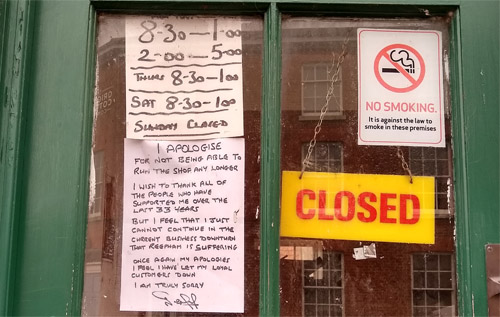 8-30-1-00
2-00-5-00
THURS 8-30-1.00
SAT 8-30-1.00
SUNDAY CLOSED
I APOLOGISE
FOR NOT BEING ABLE TO
RUN THE SHOP ANY LONGER
I WISH TO THANK ALL OF
THE PEOPLE WHO HAVE
SUPPORTED ME OVER THE
LAST 33 YEARS
BUT I FEEL THAT I JUST
CANNOT CONTINUE IN THE
CURRENT BUSINESS DOWNTURN
THAT REEPHAM IS SUFFERING
ONCE AGAIN MY APOLOGIES
I FEEL I HAVE LET MY LOYAL
CUSTOMERS DOWN
I AM TRULY SORRY
Geoff
NO SMOKING.
It is against the law to
smoke in these premises
CLOSED